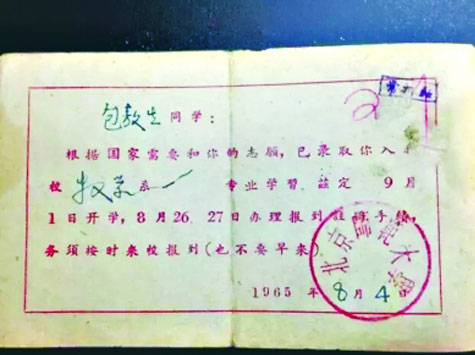 包 生同学：
根据国家需要和你的志愿，已录取你入
校 学系一 专业学習。兹定 9月
1日开学，8月26、27日办理报到註 手续，
务须按时来校报到(也不要早来)
1965 年 8 月 4 日
北京師範大學